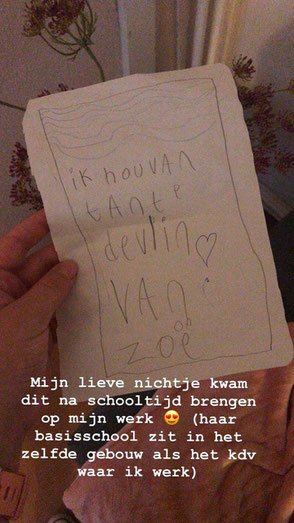 ik hou van
tante
devlin ♡
van:
zoë
Mijn lieve nichtje kwam
dit na schooltijd brengen
op mijn werk 😍 (haar
basisschool zit in het
zelfde gebouw als het kdv
waar ik werk)